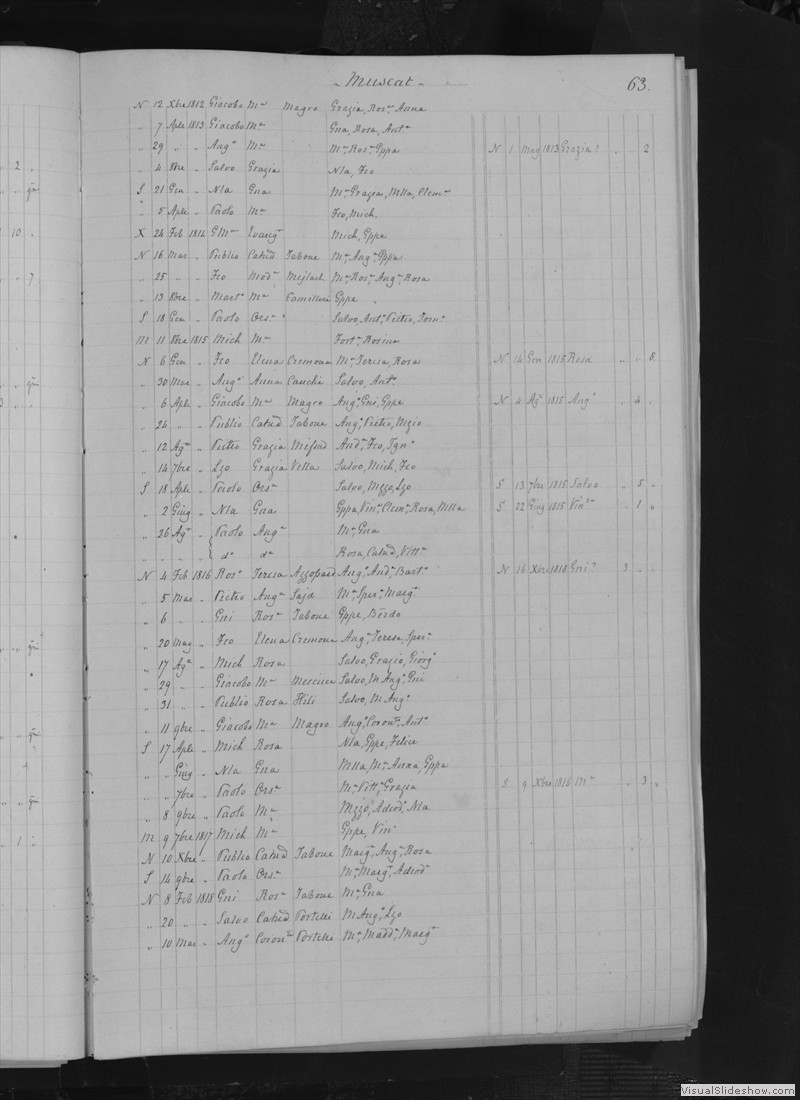 - Muscat -
63.
N 12 Xbre 1812 Giacobo Ma Magro Grazia, Rosa, Anna
„ 7 Aple 1813 Giacobo Ma Gna, Rosa, Anta
„ 29 „ „ Ango Ma Ma, Rosa, Gppa N 1 Mag 1813 Grazia „ „ 2
„ 4 8bre „ Salvo Grazia Nla, Fco
S 21 Gen „ Nla Gna Ma, Grazia, Mlla, Clema
„ 5 Aple „ Paolo Ma Fco, Mich.
X 24 Feb 1814 GMa Evangta Mich, Gppe
N 16 Mar „ Publio Catnd Tabone Ma, Anga, Gppa
„ 25 „ „ Fco Moda Mejlach Ma, Rosa, Anga, Rosa
„ 13 8bre „ Marto Ma Camilleri Gppe
S 18 Gen „ Paolo Orsa Salvo, Anto, Pietro
M 11 8bre 1815 Mich Ma Forta, Rosina
N 6 Gen „ Fco Elena Cremona Ma, Teresa, Rosa N 14 Gen 1815 Rosa „ „ 8
„ 30 Mar „ Ango Anna Cauchi Salvo, Anto
„ 6 Aple „ Giacobo Ma Magro Ango, Gni, Gppe N 4 Ago 1815 Ango „ 4 „
„ 24 „ „ Publio Catnd Tabone Ango, Pietro, Mzio
„ 12 Ago „ Pietro Grazia Mifsud Anda, Fco, Igno
„ 14 7bre „ Lzo Grazia Vella Salvo, Mich, Fco
S 18 Aple „ Paolo Orsa Salvo, Mzzo, Lzo S 13 7bre 1815 Salvo „ 5 „
„ 2 Giug „ Nla Gna Gppa, Vina, Clema, Rosa, Mlla S 22 Giug 1815 Vina „ 1 „
„ 26 Ago „ Paolo Anga Ma, Gna
da da Rosa, Catnd, Vitta
N 4 Feb 1816 Roso Teresa Azzopard Ango, Anda, Barto N 16 Xbre 1818 Gni 3 „ „
„ 5 Mar „ Pietro Anga Sajd Ma, Spera, Marga
„ 6 „ „ Gni Rosa Tabone Gppe, Berdo
„ 20 Mag „ Fco Elena Cremona Anga, Teresa, Spera
„ 17 Ago „ Mich Rosa Salvo, Grazio, Giorgo
„ 29 „ „ Giacobo Ma Mercieca Salvo, M Ango, Gni
„ 31 „ „ Publio Rosa Hili Salvo, M Ango
„ 11 9bre „ Giacobo Ma Magro Anga, Corona, Anta
S 17 Aple „ Mich Rosa Nla, Gppe, Felice
„ „ Giug „ Nla Gna Mlla, Ma, Anna, Gppa
„ „ 7bre „ Paolo Orsa Ma, Vitta, Grazia S 9 Xbre 1816 Ma „ 3 „
„ 8 9bre „ Paolo Ma Mzzo, Adeodo, Nla
M 9 7bre 1817 Mich Ma Gppe, Vino
N 10 Xbre „ Publio Catnd Tabone Marga, Anga, Rosa
S 14 9bre „ Paolo Orsa Ma, Marga, Adeoda
N 8 Feb 1818 Gni Rosa Tabone Ma, Gna
„ 20 „ „ Salvo Catnd Portelli M Ango, Lzo
„ 10 Mar „ Ango Corona Portelli Ma, Madda, Marga
VisualSlideshow.com